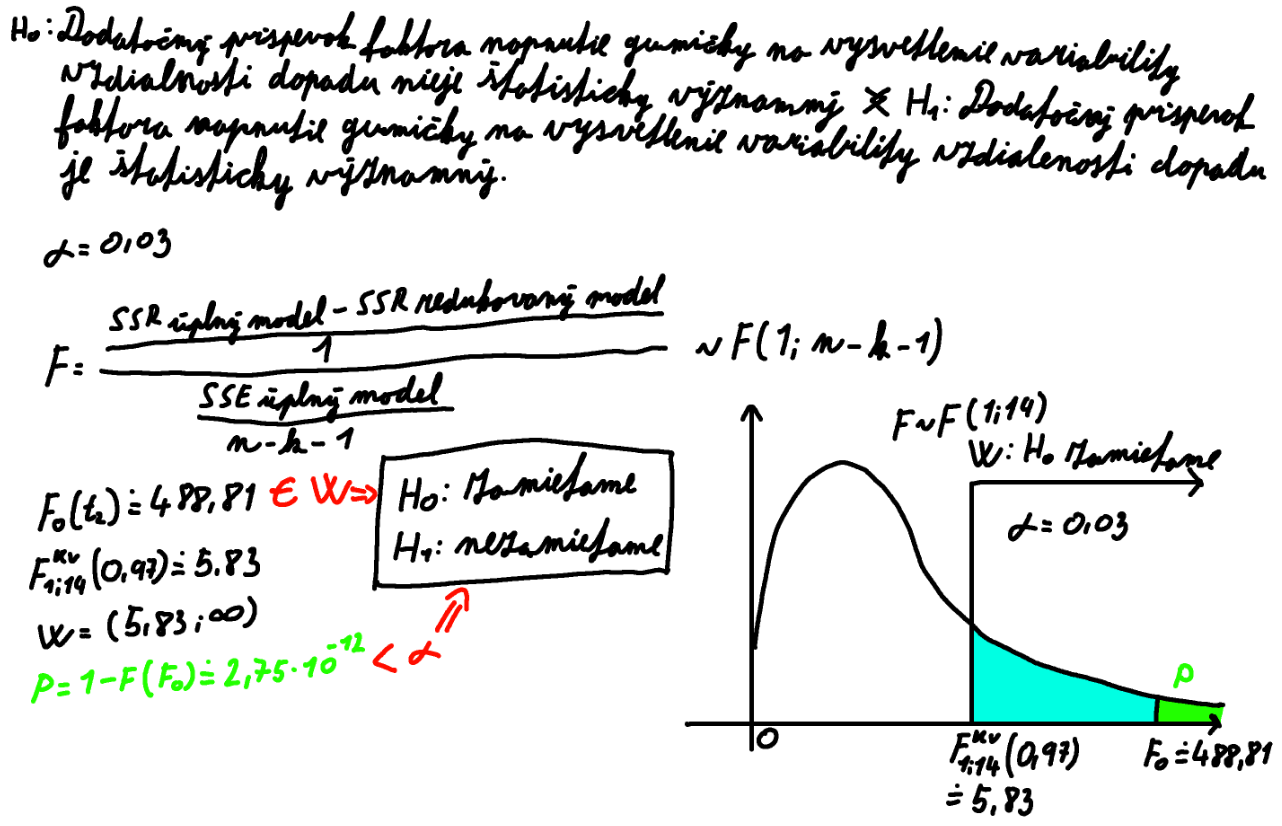 H₀: Dodatočný príspevok faktora napnutie gumičky na vysvetlenie variability
vzdialnosti dopadu nieje štatisticky významný X H₁: Dodatočný príspevok
faktora napnutie gumičky na vysvetlenie variability vzdialenosti dopadu
je štatisticky významný.
α = 0,03
F = ((SSR úplný model - SSR redukovaný model) / 1) / (SSE úplný model / (n-k-1)) ~ F(1; n-k-1)
F~F(1;14)
W: H₀ zamietame
α = 0,03
F₀(t₂) ≐ 488,81 ∈ W ⇒
H₀: zamietame
H₁: nezamietame
F₁;₁₄ᴷⱽ(0,97) ≐ 5.83
W = (5,83; ∞)
P = 1-F(F₀) ≐ 2,75·10⁻¹² < α ⇒
p
0
F₁;₁₄ᴷⱽ(0,97)
≐ 5,83
F₀ ≐ 488,81